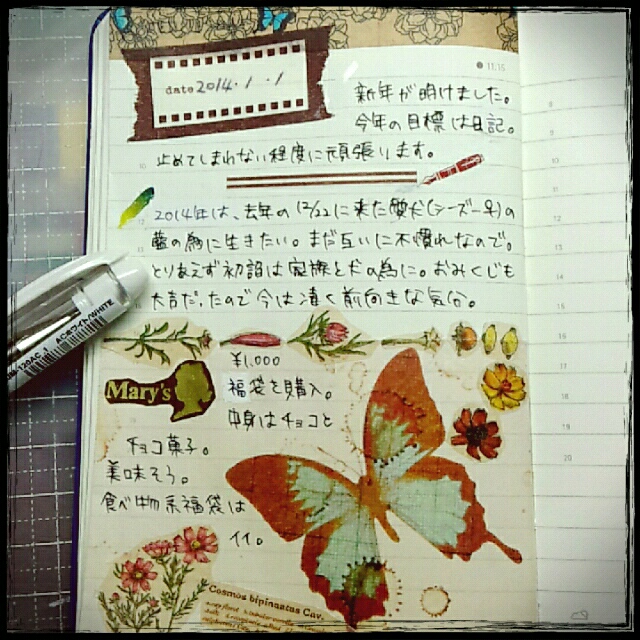 date 2014・1・1
11.15
新年が明けました。
今年の目標は日記。
止めてしまわない程度に頑張ります。
2014年は、去年の12/22に来た愛犬(シーズー♀)の
藍の為に生きたい。まだ互いに不慣れなので。
とりあえず初詣は家族と犬の為に。おみくじも
大吉だったので今は凄く前向きな気分。
¥1,000
Mary's
福袋を購入。
中身はチョコと
チョコ菓子。
美味そう。
食べ物系福袋は
イイ。
Cosmos bipinnatus Cav.
120AC ACホワイト/WHITE
8
9
10
12
16
17
18
19
20